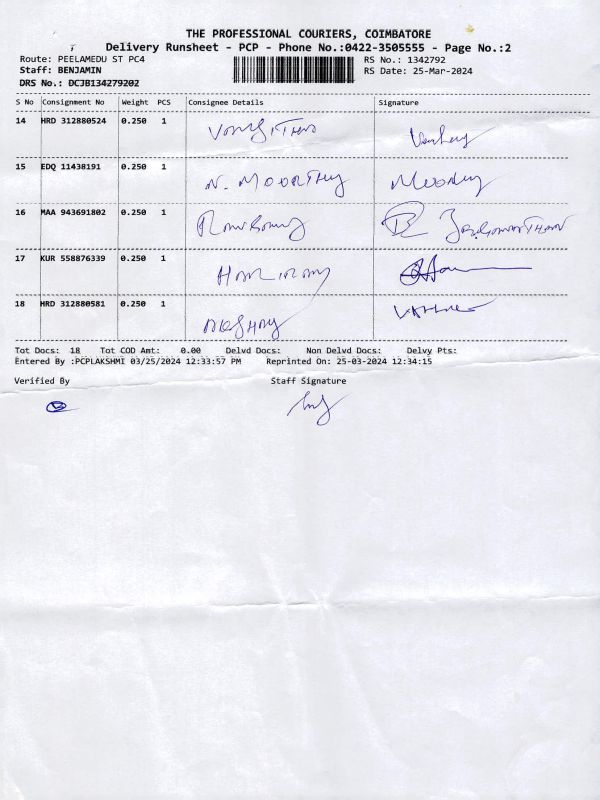 THE PROFESSIONAL COURIERS, COIMBATORE
Delivery Runsheet - PCP - Phone No.:0422-3505555 - Page No.:2
Route: PEELAMEDU ST PC4 RS No.: 1342792
Staff: BENJAMIN RS Date: 25-Mar-2024
DRS No.: DCJB134279202
S No Consignment No Weight PCS Consignee Details Signature
14 HRD 312880524 0.250 1
15 EDQ 11438191 0.250 1 N. MOORTHY Moorthy
16 MAA 943691802 0.250 1
17 KUR 558876339 0.250 1
18 HRD 312880581 0.250 1
Tot Docs: 18 Tot COD Amt: 0.00 Delvd Docs: Non Delvd Docs: Delvy Pts:
Entered By :PCPLAKSHMI 03/25/2024 12:33:57 PM Reprinted On: 25-03-2024 12:34:15
Verified By Staff Signature